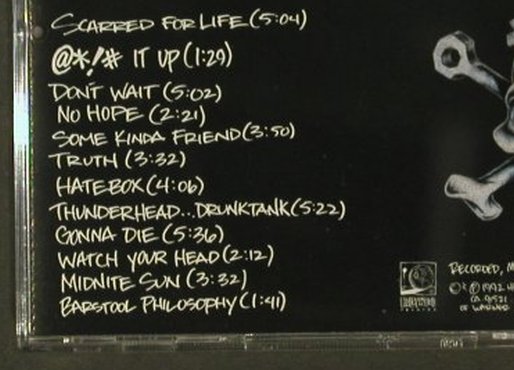 SCARRED FOR LIFE (5:04)
@*!# IT UP (1:29)
DON'T WAIT (5:02)
NO HOPE (2:21)
SOME KINDA FRIEND (3:50)
TRUTH (3:32)
HATEBOX (4:06)
THUNDERHEAD...DRUNKTANK (5:22)
GONNA DIE (5:36)
WATCH YOUR HEAD (2:12)
MIDNITE SUN (3:32)
BARSTOOL PHILOSOPHY (1:41)
RECORDED, M
1992 H
CA 91521
OF WARNER